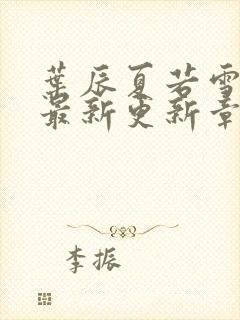 叶辰夏若雪
最新更新章
李振